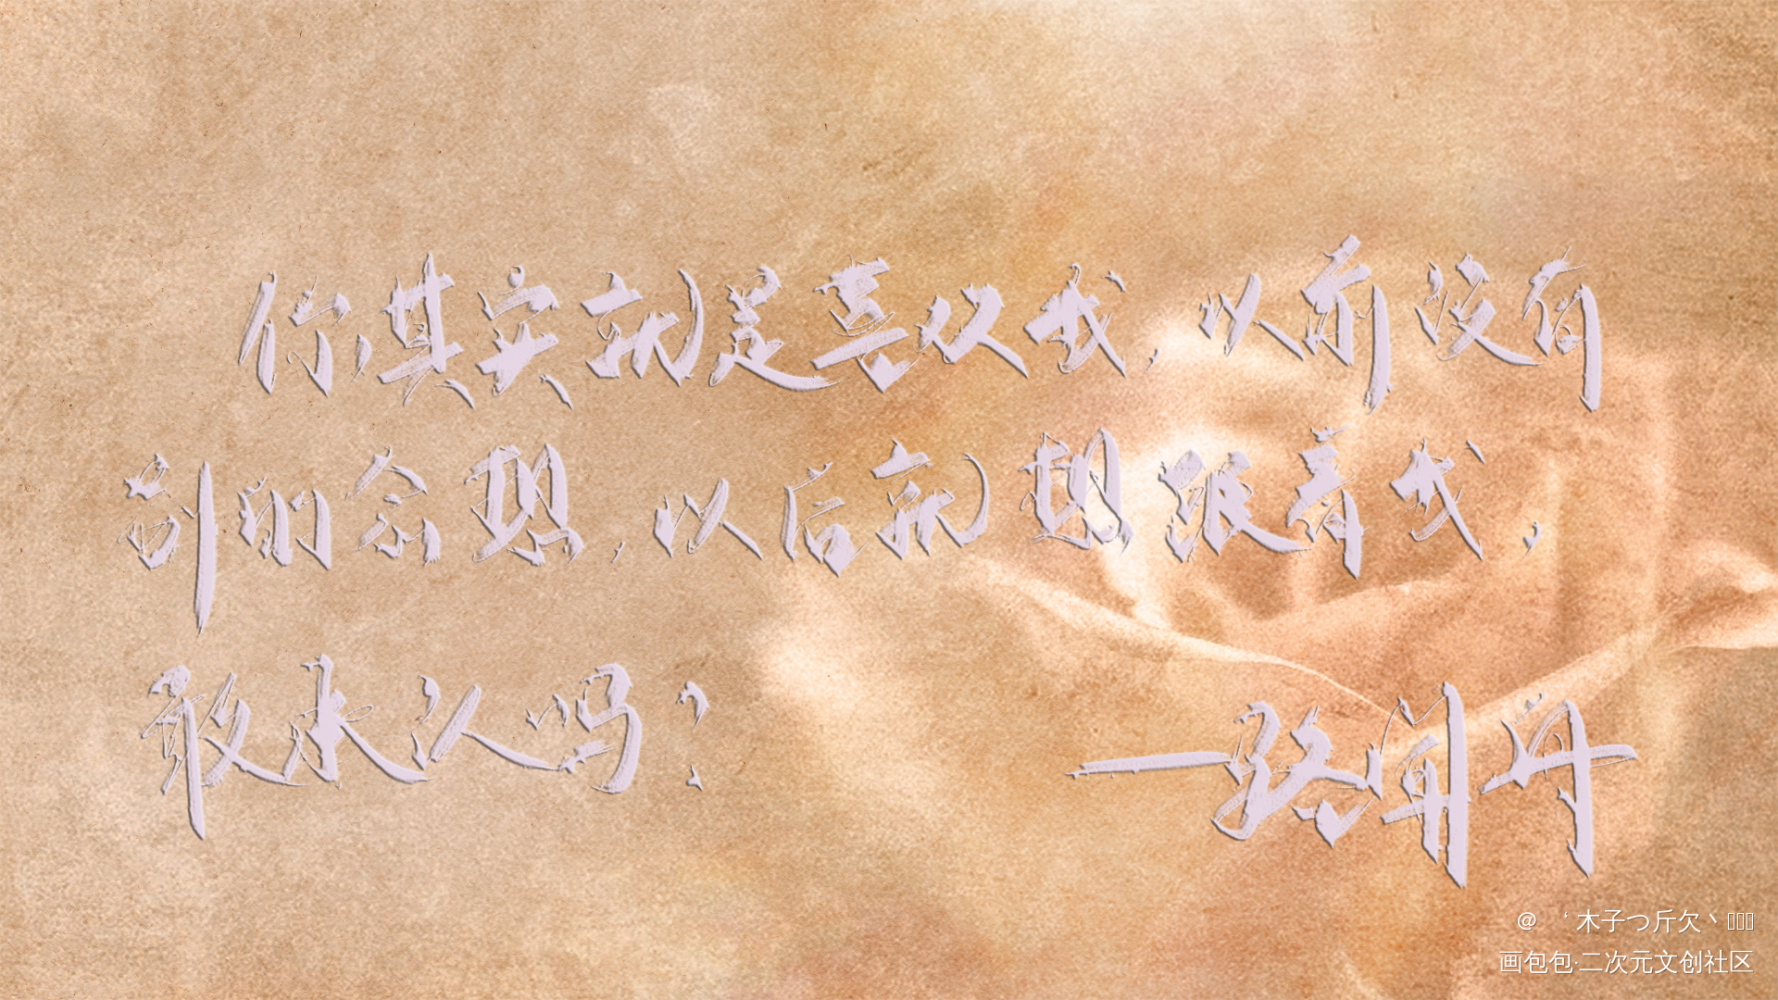 你其实就是喜欢我,以前没有
别的念想,以后就想跟着我,
敢承认吗?
——路闻舟
@ ‘ 木子つ斤欠丶
画包包·二次元文创社区